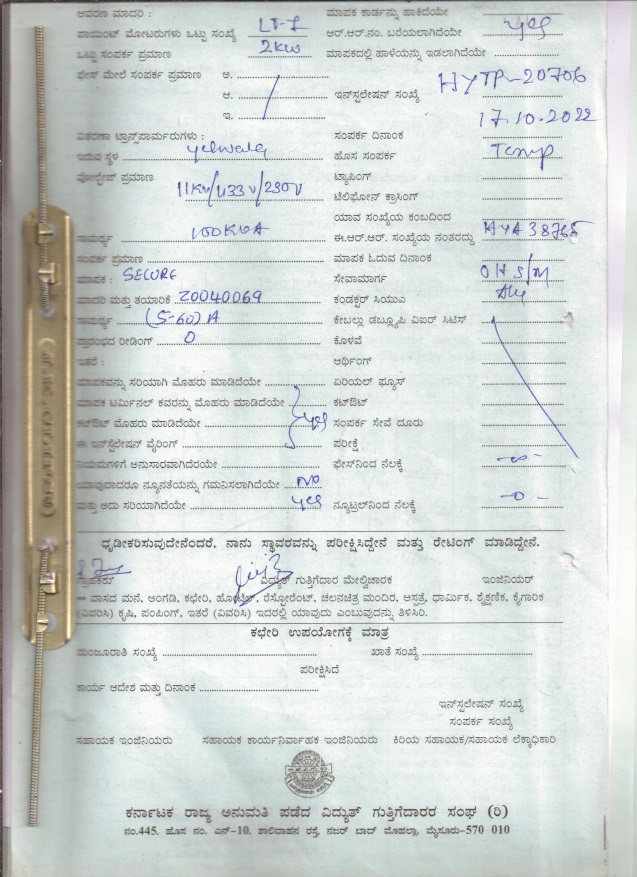 ಆವರಣ ಮಾದರಿ : ಮಾಪಕ ಕಾರ್ಡನ್ನು ಹಾಕಿದೆಯೇ
ಪಾಯಿಂಟ್ ಮೋಟರುಗಳು ಒಟ್ಟು ಸಂಖ್ಯೆ LT-1 ಆರ್.ಆರ್.ನಂ. ಬರೆಯಲಾಗಿದೆಯೇ yes
ಒಟ್ಟು ಸಂಪರ್ಕ ಪ್ರಮಾಣ 2KW ಮಾಪಕದಲ್ಲಿ ಹಾಳೆಯನ್ನು ಇಡಲಾಗಿದೆಯೇ
ಫೇಸ್ ಮೇಲೆ ಸಂಪರ್ಕ ಪ್ರಮಾಣ ಅ.
ಆ. ಇನ್‌ಸ್ಟಲೇಷನ್ ಸಂಖ್ಯೆ HYTP-20706
ಇ. 17.10.2022
ವಿತರಣಾ ಟ್ರಾನ್ಸ್‌ಪಾರ್ಮರುಗಳು : ಸಂಪರ್ಕ ದಿನಾಂಕ
ಇರುವ ಸ್ಥಳ yelwala ಹೊಸ ಸಂಪರ್ಕ Temp
ವೋಲ್ಟೇಜ್ ಪ್ರಮಾಣ 11KV/433V/230V ಟ್ಯಾಪಿಂಗ್
ಟೆಲಿಫೋನ್ ಕ್ರಾಸಿಂಗ್
ಯಾವ ಸಂಖ್ಯೆಯ ಕಂಬದಿಂದ
ಸಾಮರ್ಥ್ಯ 100KVA ಈ.ಆರ್.ಆರ್. ಸಂಖ್ಯೆಯ ನಂತರದ್ದು HYA38765
ಸಂಪರ್ಕ ಪ್ರಮಾಣ ಮಾಪಕ ಓದುವ ದಿನಾಂಕ
ಮಾಪಕ : SECURE ಸೇವಾಮಾರ್ಗ OH S/M
ಮಾದರಿ ಮತ್ತು ತಯಾರಿಕೆ 20040069 ಕಂಡಕ್ಟರ್ ಸಿಯುಎ
ಸಾಮರ್ಥ್ಯ (5-60) A ಕೇಬಲ್ಲು ಡಬ್ಲ್ಯೂಪಿ ವಿಐರ್ ಸಿಟಿಸ್
ಪ್ರಾರಂಭದ ರೀಡಿಂಗ್ 0 ಕೊಳವೆ
ಇತರೆ : ಅರ್ಥಿಂಗ್
ಮಾಪಕವನ್ನು ಸರಿಯಾಗಿ ಮೊಹರು ಮಾಡಿದೆಯೇ ಏರಿಯಲ್ ಫ್ಯೂಸ್
ಮಾಪಕ ಟರ್ಮಿನಲ್ ಕವರನ್ನು ಮೊಹರು ಮಾಡಿದೆಯೇ ಕಟ್‌ಔಟ್
ಕಟ್‌ಔಟ್ ಮೊಹರು ಮಾಡಿದೆಯೇ yes ಸಂಪರ್ಕ ಸೇವೆ ದೂರು
ಈ ಇನ್‌ಸ್ಟೆಲೇಷನ್ ವೈರಿಂಗ್ ಪರೀಕ್ಷೆ
ನಿಯಮಗಳಿಗೆ ಅನುಸಾರವಾಗಿದೆರಯೇ ಫೇಸ್‌ನಿಂದ ನೆಲಕ್ಕೆ
ಯಾವುದಾದರೂ ನ್ಯೂನತೆಯನ್ನು ಗಮನಿಸಲಾಗಿದೆಯೇ NO
ಮತ್ತು ಅದು ಸರಿಯಾಗಿದೆಯೇ yes ನ್ಯೂಟ್ರಲ್‌ನಿಂದ ನೆಲಕ್ಕೆ - 0 -
ಧೃಡೀಕರಿಸುವುದೇನೆಂದರೆ, ನಾನು ಸ್ಥಾವರವನ್ನು ಪರೀಕ್ಷಿಸಿದ್ದೇನೆ ಮತ್ತು ರೇಟಿಂಗ್ ಮಾಡಿದ್ದೇನೆ.
ಗ್ರಾಹಕರು ವಿದ್ಯುತ್ ಗುತ್ತಿಗೆದಾರ ಮೇಲ್ವಿಚಾರಕ ಇಂಜಿನಿಯರ್
** ವಾಸದ ಮನೆ, ಅಂಗಡಿ, ಕಛೇರಿ, ಹೋಟೆಲ್, ರೆಸ್ಟೋರೆಂಟ್, ಚಲನಚಿತ್ರ ಮಂದಿರ, ಆಸ್ಪತ್ರೆ, ಧಾರ್ಮಿಕ, ಶೈಕ್ಷಣಿಕ, ಕೈಗಾರಿಕ
(ವಿವರಿಸಿ) ಕೃಷಿ, ಪಂಪಿಂಗ್, ಇತರೆ (ವಿವರಿಸಿ) ಇದರಲ್ಲಿ ಯಾವುದು ಎಂಬುವುದನ್ನು ತಿಳಿಸಿರಿ.
ಕಛೇರಿ ಉಪಯೋಗಕ್ಕೆ ಮಾತ್ರ
ಮಂಜೂರಾತಿ ಸಂಖ್ಯೆ ಖಾತೆ ಸಂಖ್ಯೆ
ಪರೀಕ್ಷಿಸಿದೆ
ಕಾರ್ಯ ಆದೇಶ ಮತ್ತು ದಿನಾಂಕ
ಇನ್‌ಸ್ಪಲೇಷನ್ ಸಂಖ್ಯೆ
ಸಂಪರ್ಕ ಸಂಖ್ಯೆ
ಸಹಾಯಕ ಇಂಜಿನಿಯರು ಸಹಾಯಕ ಕಾರ್ಯನಿರ್ವಾಹಕ ಇಂಜಿನಿಯರು ಕಿರಿಯ ಸಹಾಯಕ/ಸಹಾಯಕ ಲೆಕ್ಕಾಧಿಕಾರಿ
ಕರ್ನಾಟಕ ರಾಜ್ಯ ಅನುಮತಿ ಪಡೆದ ವಿದ್ಯುತ್ ಗುತ್ತಿಗೆದಾರರ ಸಂಘ (ರಿ)
ನಂ.445, ಹೊಸ ನಂ. ಎನ್-10, ಶಾಲಿವಾಹನ ರಸ್ತೆ, ನಜರ್ ಬಾದ್ ಮೊಹಲ್ಲಾ, ಮೈಸೂರು-570 010